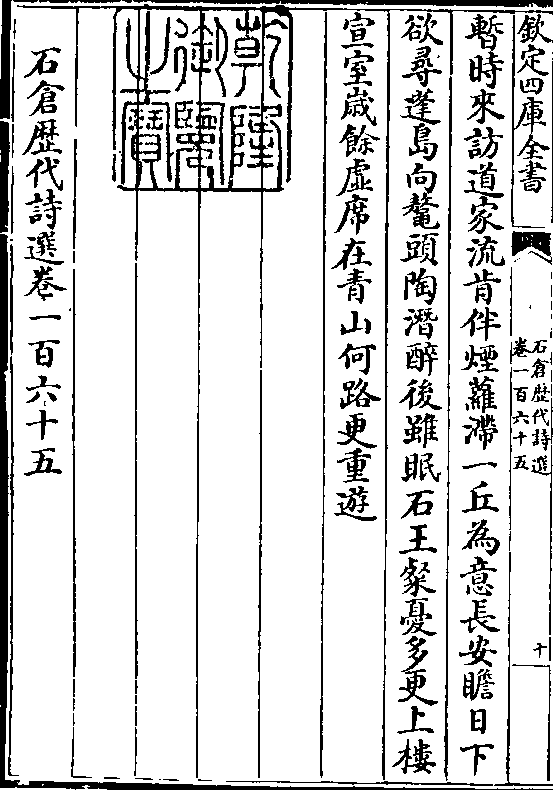 欽定四庫全書
石倉歴代詩選
卷一百六十五
十
暫時來訪道家流肯伴煙蘿滯一丘為意長安瞻日下
欲尋蓬島向鼇頭陶潛醉後雖眠石王粲憂多更上樓
宣室歳餘虛席在青山何路更重遊
乾隆御覽之寶
石倉歴代詩選卷一百六十五